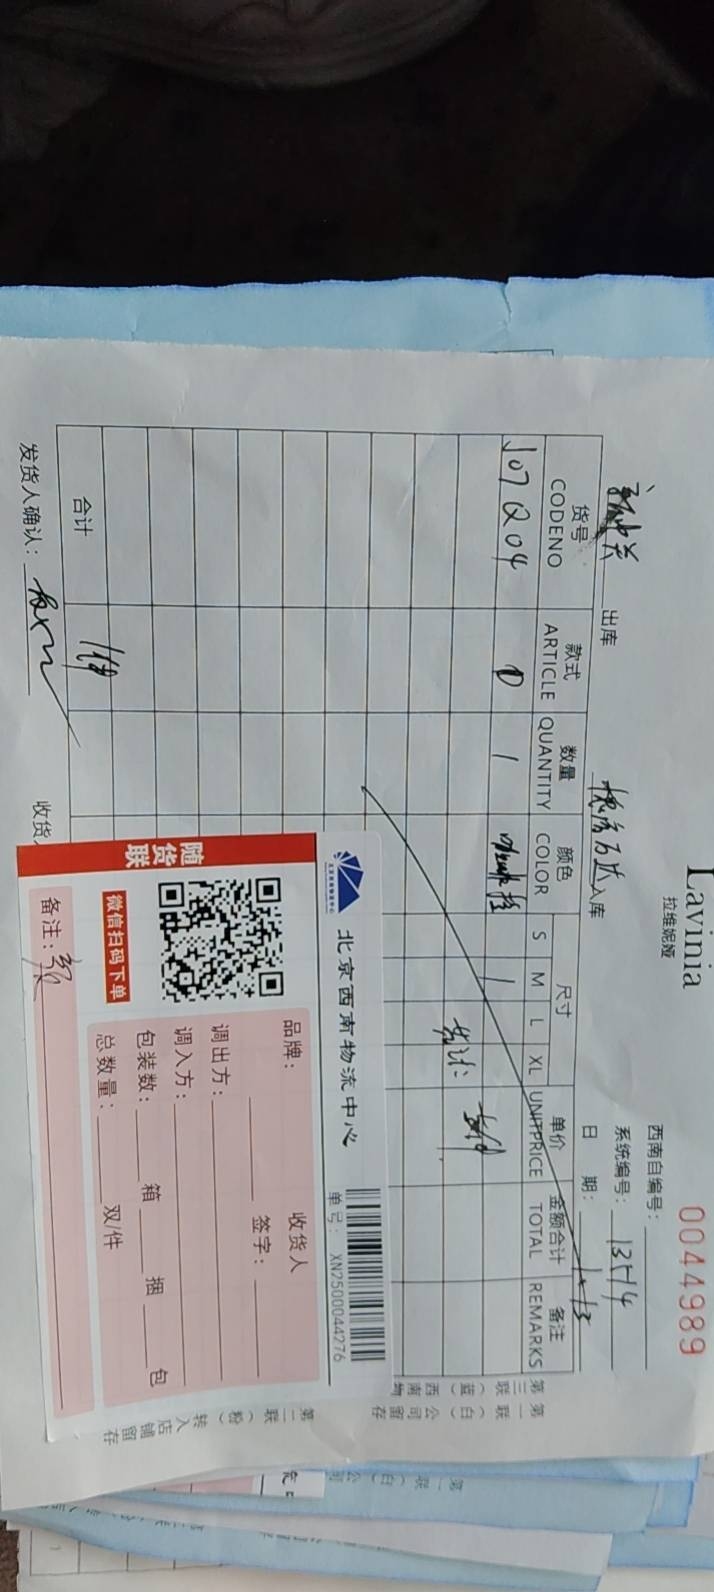 Lavinia
拉维妮娅
0044989
西南自编号：
系统编号：13514
出库 入库 日 期：
货号 款式 数量 颜色 尺寸 单价 金额合计 备注
CODENO ARTICLE QUANTITY COLOR S M L XL UNITPRICE TOTAL REMARKS
J07Q04 D 1 1
合计 1件
发货人确认： 收货
第一联（白）公司留存
第二联（粉）转入店铺留存
第三联（蓝）西南物
北京西南物流中心
单号： XN2500044276
品牌： 收货人
签字：
调出方：
调入方：
包装数： 箱 捆 包
总数量： 双/件
微信扫码下单
备注：
随货联